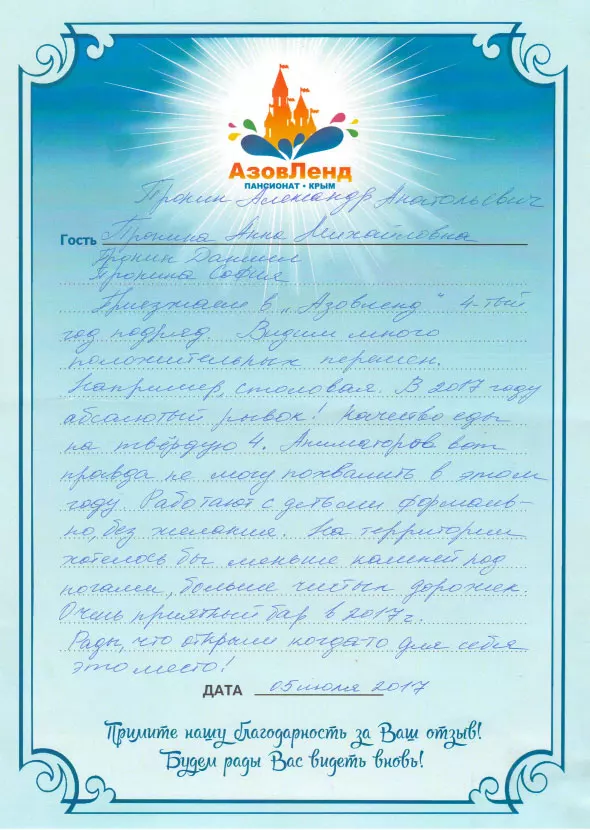 АзовЛенд
ПАНСИОНАТ • КРЫМ
Пронин Александр Анатольевич
Гость Пронина Анна Михайловна
Пронин Даниил
Пронина София
Приезжаем в „Азовленд" 4-тый
год подряд. Видим много
положительных перемен.
Например, столовая. В 2017 году
абсолютый рывок! Качество еды
на твёрдую 4. Аниматоров вот
правда не могу похвалить в этом
году. Работают с детьми формаль-
но, без желания. На территории
хотелось бы меньше камней под
ногами, больше чистых дорожек.
Очень приятный бар в 2017г.
Рады, что открыли когдато для себя
это место!
ДАТА 05 июля 2017
Примите нашу благодарность за Ваш отзыв!
Будем рады Вас видеть вновь!